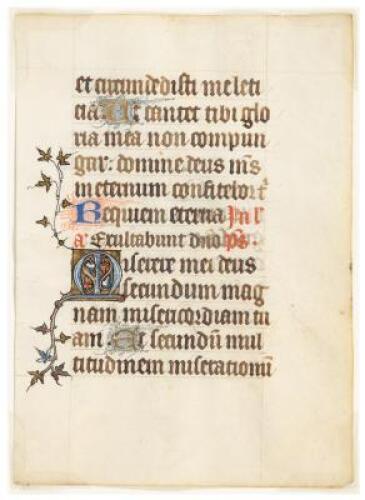 et circumdedisti me leti
cia Ut cantet tibi glo
ria mea non compun
gar: domine deus m̄s
in eternum confitebor t
Requiem eterna
a Exultabunt dn̄o ps.
Miserere mei deus
secundum mag
nam misericordiam tu
am Et secundū mul
titudinem miserationū